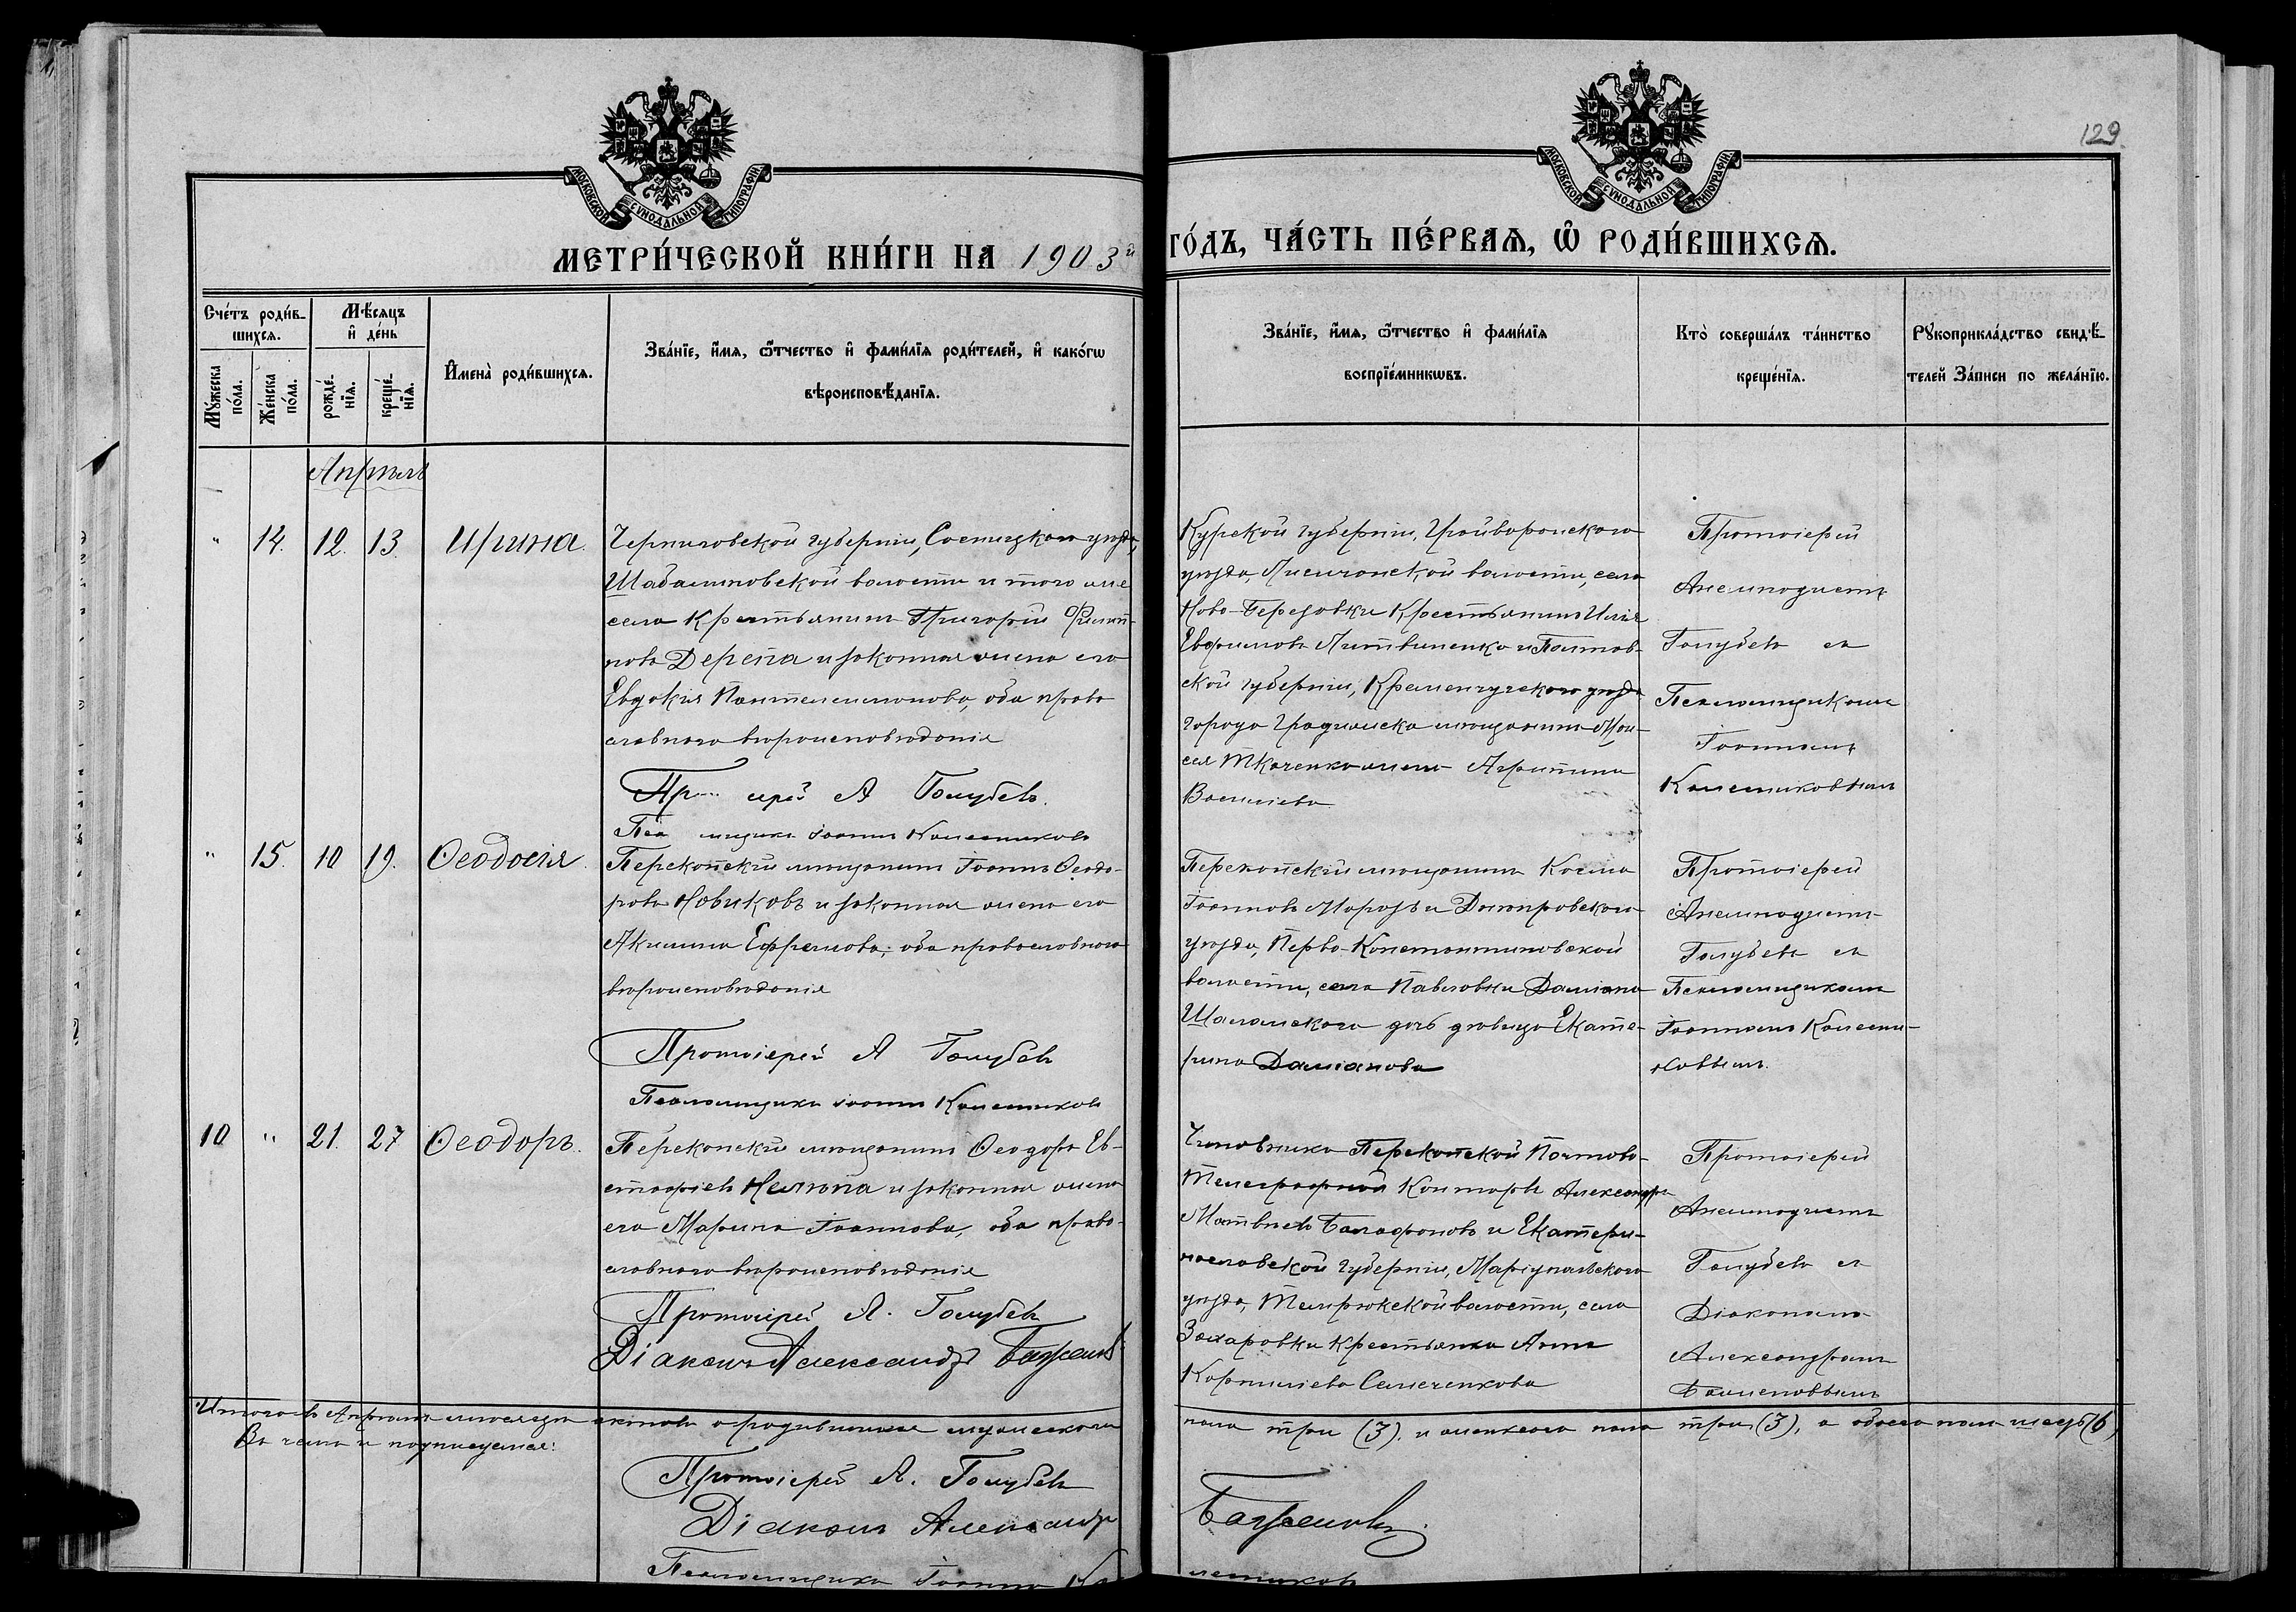 129
МОСКОВСКОЙ СѴНОДАЛЬНОЙ ТИПОГРАФІИ
МОСКОВСКОЙ СѴНОДАЛЬНОЙ ТИПОГРАФІИ
МЕТРИ́ЧЕСКОЙ КНИ́ГИ НА 1903й ГО́ДЪ, ЧА́СТЬ ПЕ́РВАѦ, Ѡ РОДИ́ВШИХСѦ.
Сче́тъ роди́в-
шихсѧ.
Мꙋ́жеска по́ла.
Же́нска по́ла.
Мѣ́сѧцъ
и де́нь
рожде́-нїѧ.
креще́-нїѧ.
Имена̀ роди́вшихсѧ.
Зва́нїе, и́мѧ, ѻ́тчество и фами́лїѧ роди́телей, и како́гѡ
вѣроисповѣ́данїѧ.
Зва́нїе, и́мѧ, ѻ́тчество и фами́лїѧ
воспрїе́мникѡвъ.
Кто̀ соверша́лъ та́инство
креще́нїѧ.
Рꙋкоприкла́дство свидѣ́-
телей За́писи по жела́нїю.
Апрѣль
" 14. 12. 13. Ирина.
Черниговской губерніи, Сосницкаго уѣзда,
Шабалиновской волости и того же
села крестьянинъ Григорій Филип-
повъ Дерепа и законная жена его
Евдокія Пантелеимонова, оба право
славнаго вѣроисповѣданія
Пр іерей А Голубевъ.
Пса мщикъ Іоаннъ Колесниковъ
Курской губерніи, Грайворонскаго
уѣзда, Лисичанской волости, села
Ново-Березовки крестьянинъ Илія
Евфимовъ Литвиненко и Полтав-
ской губерніи, Кременчугскаго уѣзда
города Градижска мѣщанина Мои-
сея Ткаченко жена Агрипина
Василіева
Протоіерей
Анемподистъ
Голубевъ съ
Псаломщикомъ
Іоанномъ
Колесниковымъ
" 15. 10 19. Ѳеодосія.
Перекопскій мѣщанинъ Іоаннъ Ѳеодо-
ровъ Новиковъ и законная жена его
Акилина Ефремова; оба православнаго
вѣроисповѣданія
Протоіерей А Голубевъ
Псаломщикъ Іоаннъ Колесниковъ
Перекопскій мѣщанинъ Косма
Іоанновъ Морозъ и Днѣпровскаго
уѣзда, Перво-Константиновской
волости, села Павловки Даміана
Шаламскаго дочь дѣвица Екате-
рина Даміанова
Протоіерей
Анемподистъ
Голубевъ съ
Псаломщикомъ
Іоанномъ Колесни-
ковымъ.
10 " 21. 27 Ѳеодоръ.
Перекопскій мѣщанинъ Ѳеодоръ Ев-
стафіевъ Нелюпа и законная жена
его Марина Іоаннова, оба право-
славнаго вѣроисповѣданія
Протоіерей А. Голубевъ
Діаконъ Александръ Баженовъ
Чиновникъ Перекопской Почтово-
Телеграфной Конторы Александръ
Матвѣевъ Балафоновъ и Екатери-
нославской губерніи, Маріупольскаго
уѣзда, Темрюкской волости, села
Захаровки крестьянка Анна
Корниліева Семеченкова
Протоіерей
Анемподистъ
Голубевъ съ
Діакономъ
Александромъ
Баженовымъ
Итого въ Апрѣлѣ мѣсяцѣ актовъ о родившихся мужескаго пола три (3), и женскаго пола три (3), а обоего пола шесть (6)
Въ чемъ и подписуемся:
Протоіерей А. Голубевъ
Діаконъ Александръ Баженовъ.
Псаломщикъ Іоаннъ Колесниковъ